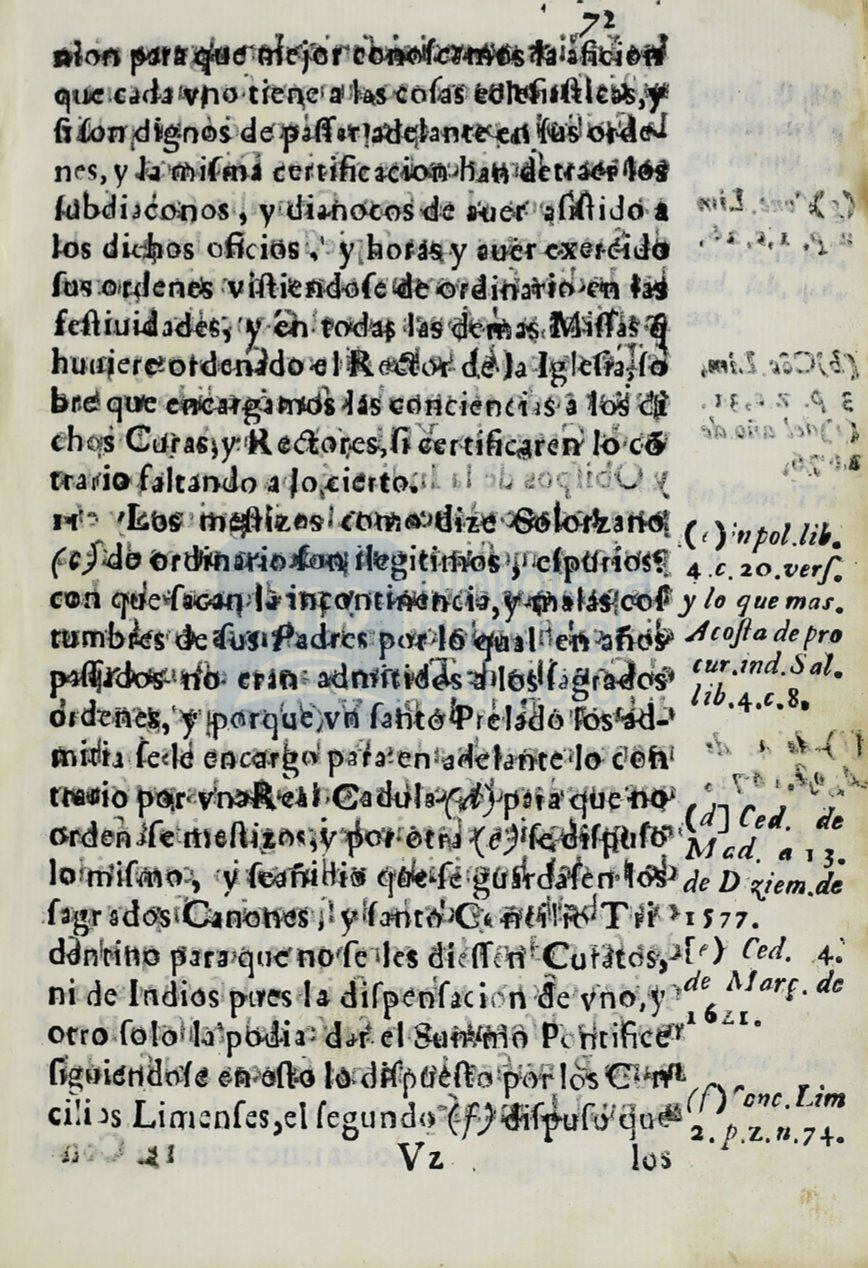 72
nion para que mejor conoscamos la aficion
que cada vno tiene a las cosas eclesiasticas, y
si son dignos de passar adelante en sus orde-
nes, y la misma certificacion han de traer los
subdiaconos, y dianocos de auer asistido a
los dichos oficios, y horas y auer exercido
sus ordenes vistiendose de ordinario en las
festiuidades, y en todas las demas Missas q̃
huuiere ordenado el Rector de la Iglesia, so
bre que encargamos las conciencias a los di
chos Curas, y Rectores, si certificaren lo cõ
trario faltando a lo cierto.
11 Los mestizos como dize Solorzano
(c) de ordinario son ilegitimos, espurios
con que sacan la incontinencia, y malas cos
tumbres de sus Padres por lo qual en años
passados no eran admitidos a los sagrados
ordenes, y porque vn santo Prelado los ad-
mitia se le encargo para en adelante lo con
trario por vna Real Cadula (d) para que no
ordenase mestizos, y por otra (e) se dispuso
lo mismo, y se añidio que se guardasen los
sagrados Canones, y santo Concilio Tri
dantino para que no se les diessen Curatos,
ni de Indios pues la dispensacion de vno, y
otro solo la podia dar el Summo Pontifice
siguiendose en esto lo dispuesto por los Con
cilios Limenses, el segundo (f) dispuso que
Vz
los
(c) in pol. lib.
4. c. 20. vers.
y lo que mas.
Acosta de pro
cur. ind. Sal.
lib. 4. c. 8.
(d] Ced. de
Mad. a 13.
de Dziem. de
1577.
[e) Ced. 4.
de Març. de
1621.
(f) Conc. Lim
2. p. z. n. 74.